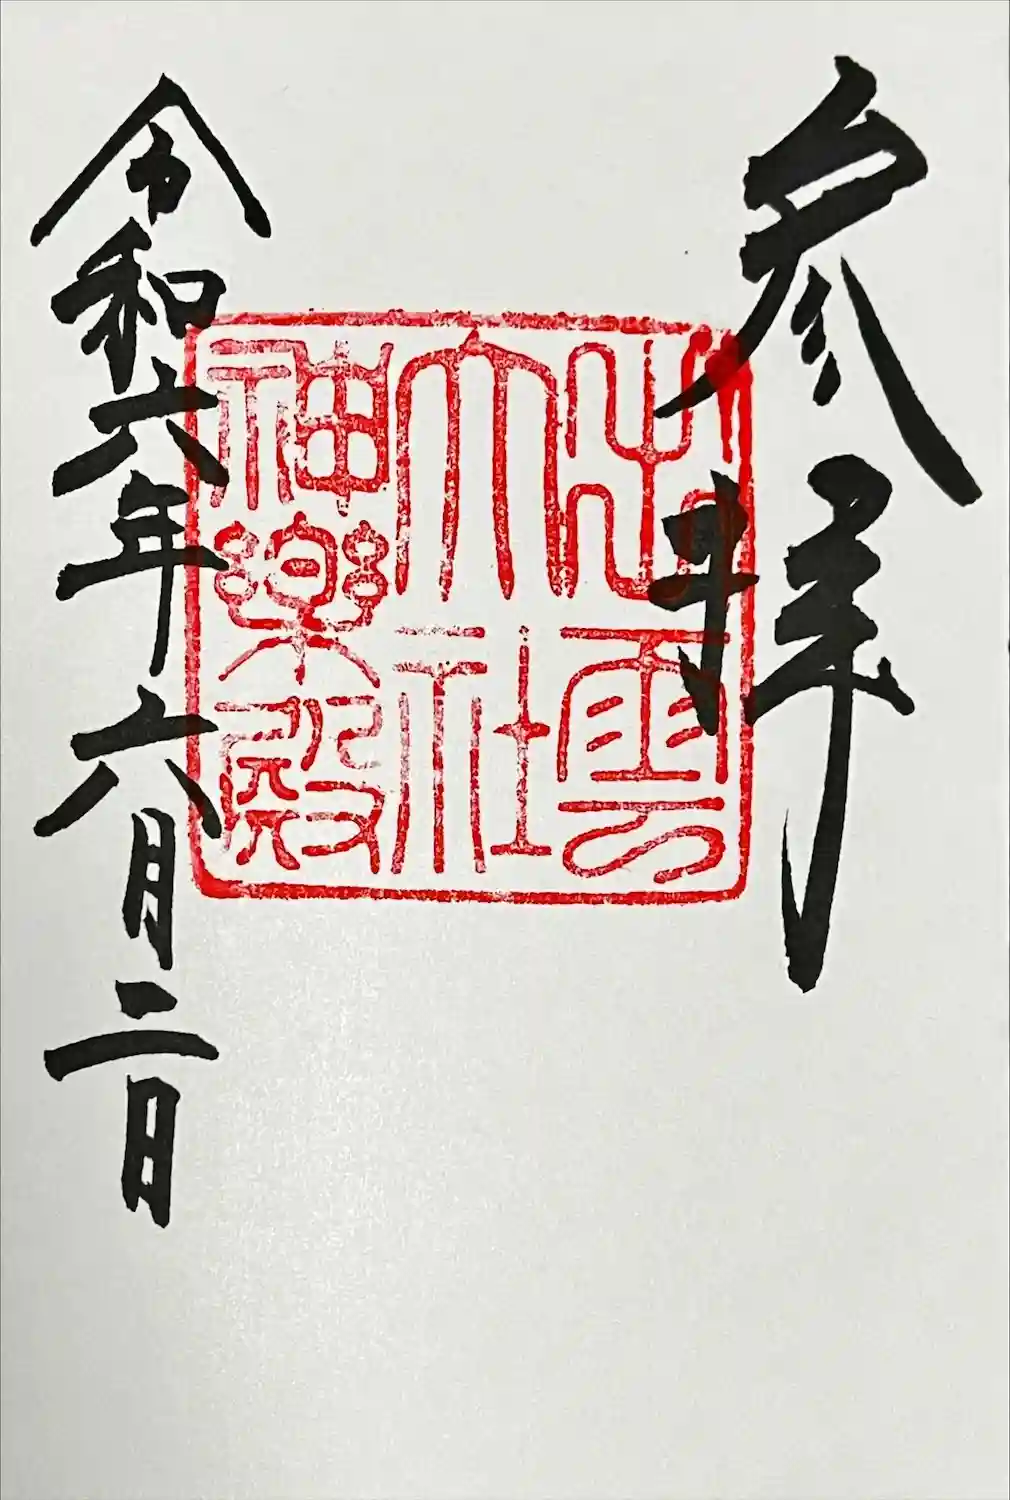 参拝
出雲
大社
神楽殿
令和六年六月二日